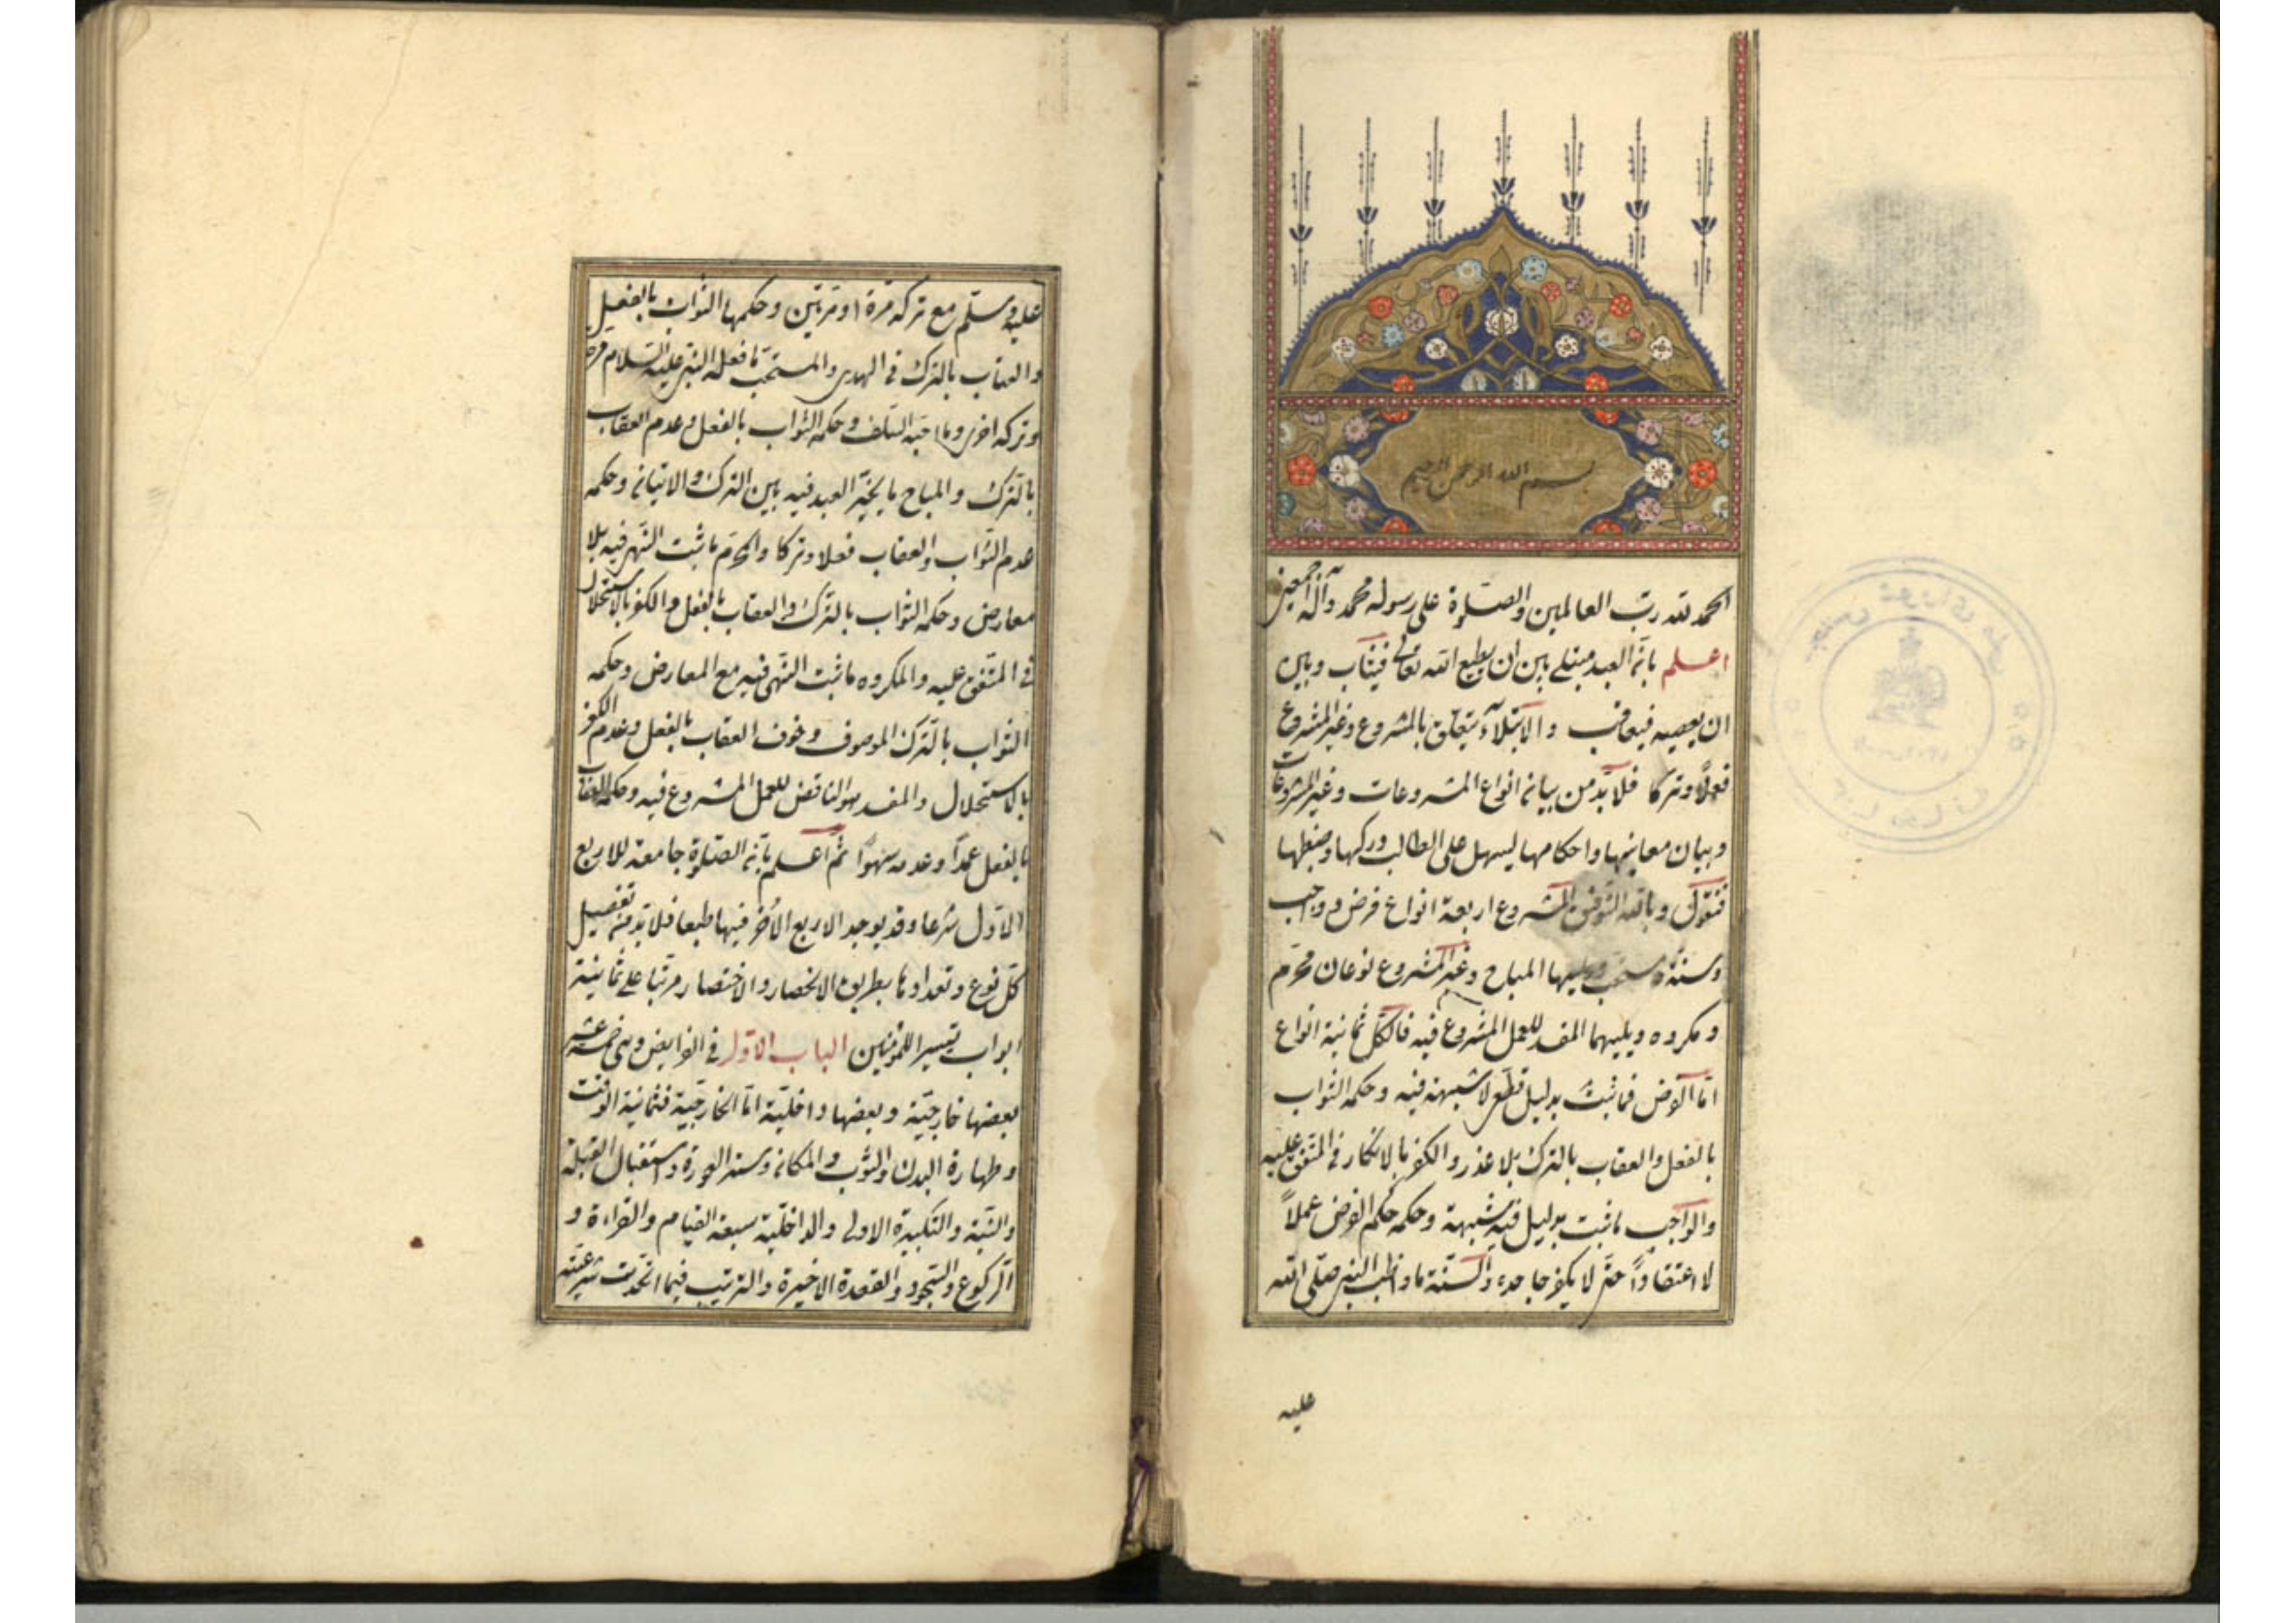 بسم الله الرحمن الرحيم
الحمد لله رب العالمين والصلوة على رسوله محمد وآله اجمعين
اعلم بان العبد مبتلى بين ان يطيع الله تعالى فيثاب وبين
ان يعصيه فيعاقب والابتلاء يتعلق بالمشروع وغير المشروع
فعلاً وتركا فلا بدّ من بيان انواع المشروعات وغير المشروعات
وبيان معانيها واحكامها ليسهل على الطالب دركها وضبطها
فنقول وبالله التوفيق المشروع اربعة انواع فرض وواجب
وسنّة ومستحب ويليها المباح وغير المشروع نوعان محرّم
ومكروه ويليهما المفسد للعمل المشروع فيه فالكل ثمانية انواع
امّا الفرض فما ثبت بدليل قطعي لا شبهة فيه وحكمه الثواب
بالفعل والعقاب بالترك بلا عذر والكفر بالانكار في المتفق عليه
والواجب ما ثبت بدليل فيه شبهة وحكمه حكم الفرض عملاً
لا اعتقاداً حتى لا يكفر جاحده والسنّة ما واظب النبي صلى الله
عليه
عليه وسلّم مع تركه مرة او مرتين وحكمها الثواب بالفعل
والعتاب بالترك في الهدى والمستحبّ ما فعله النبي عليه السلام مرة
وتركه اخرى وما احبّه السلف وحكمه الثواب بالفعل وعدم العقاب
بالترك والمباح ما يخيّر العبد فيه بين الترك والاتيان وحكمه
عدم الثواب والعقاب فعلا وتركا والمحرّم ما ثبت النهى فيه بلا
معارض وحكمه الثواب بالترك والعقاب بالفعل والكفر بالاستحلال
في المتّفق عليه والمكروه ما ثبت النهى فيه مع المعارض وحكمه
الثواب بالترك الموصوف وخوف العقاب بالفعل وعدم الكفر
بالاستحلال والمفسد هو الناقض للعمل المشروع فيه وحكمه العقاب
بالفعل عمداً وعدمه سهوًا ثمّ اعلم بانّ الصلوة جامعة للاربع
الاوّل شرعا وقد يوجد الاربع الأخر فيها طبعا فلا بدّ من تفصيل
كلّ نوع وتعدادها بطريق الانحصار والاختصار مرتّبا على ثمانية
ابواب تيسيرا للمؤمنين الباب الاوّل في الفرايض وهى خمسة عشر
بعضها خارجيّة وبعضها داخلية امّا الخارجيّة فثمانية الوقت
وطهارة البدن والثوب والمكان وستر العورة واستقبال القبلة
والنيّة والتكبيرة الاولى والداخليّة سبعة القيام والقراءة و
الركوع والسجود والقعدة الاخيرة والترتيب فيما اتحدت شرعيّته